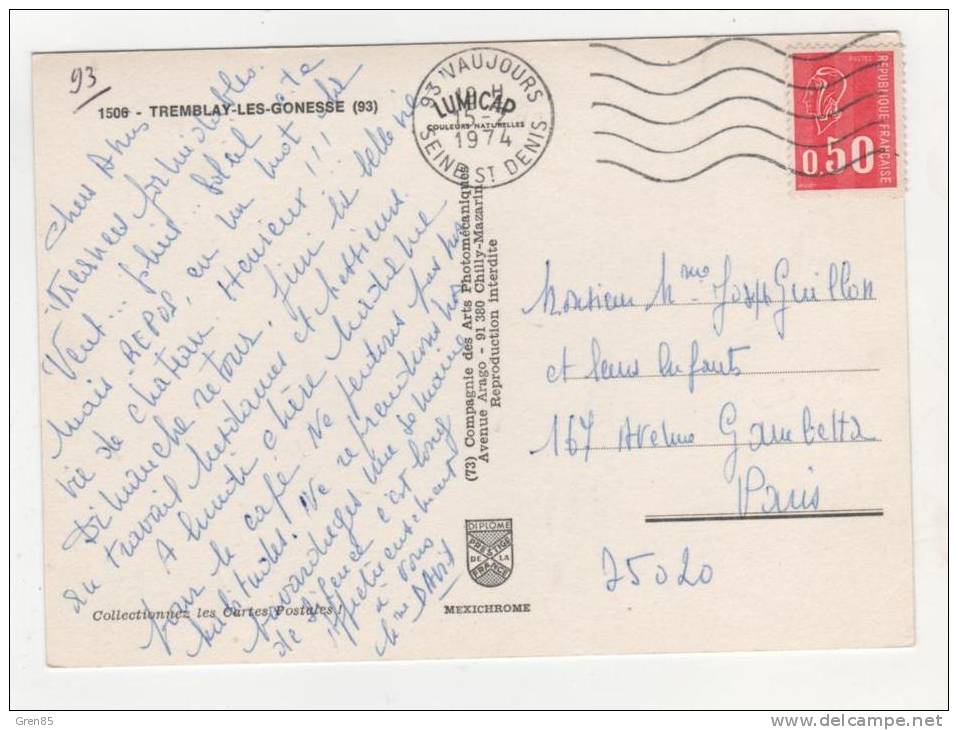 93
1506 - TREMBLAY-LES-GONESSE (93)
93 VAUJOURS
18 H
LUMICAP
COULEURS NATURELLES
15-2
1974
SEINE ST DENIS
REPUBLIQUE FRANÇAISE
0.50
Chers Amis
Vacances formidables.
Vent... pluie... Soleil
Mais REPOS, en un mot la
vie de château. Heureux!!!
Dimanche retour, fini la belle vie
au travail Mesdames et Messieurs.
A lundi chère Madame
pour le café. Ne perdons pas nos
habitudes. Ne reprendrons nos
bavardages une semaine
de silence c'est long
Affectueusement
à vous
Mme DAVIS
(73) Compagnie des Arts Photomécaniques
Avenue Arago - 91 380 Chilly-Mazarin
Reproduction interdite
Monsieur Mme Joseph Guillon
et leurs enfants
167 Avenue Gambetta
Paris
75020
DIPLOME
PRESTIGE
DE LA
FRANCE
MEXICHROME
Collectionnez les Cartes Postales !
Gren85
www.delcampe.net